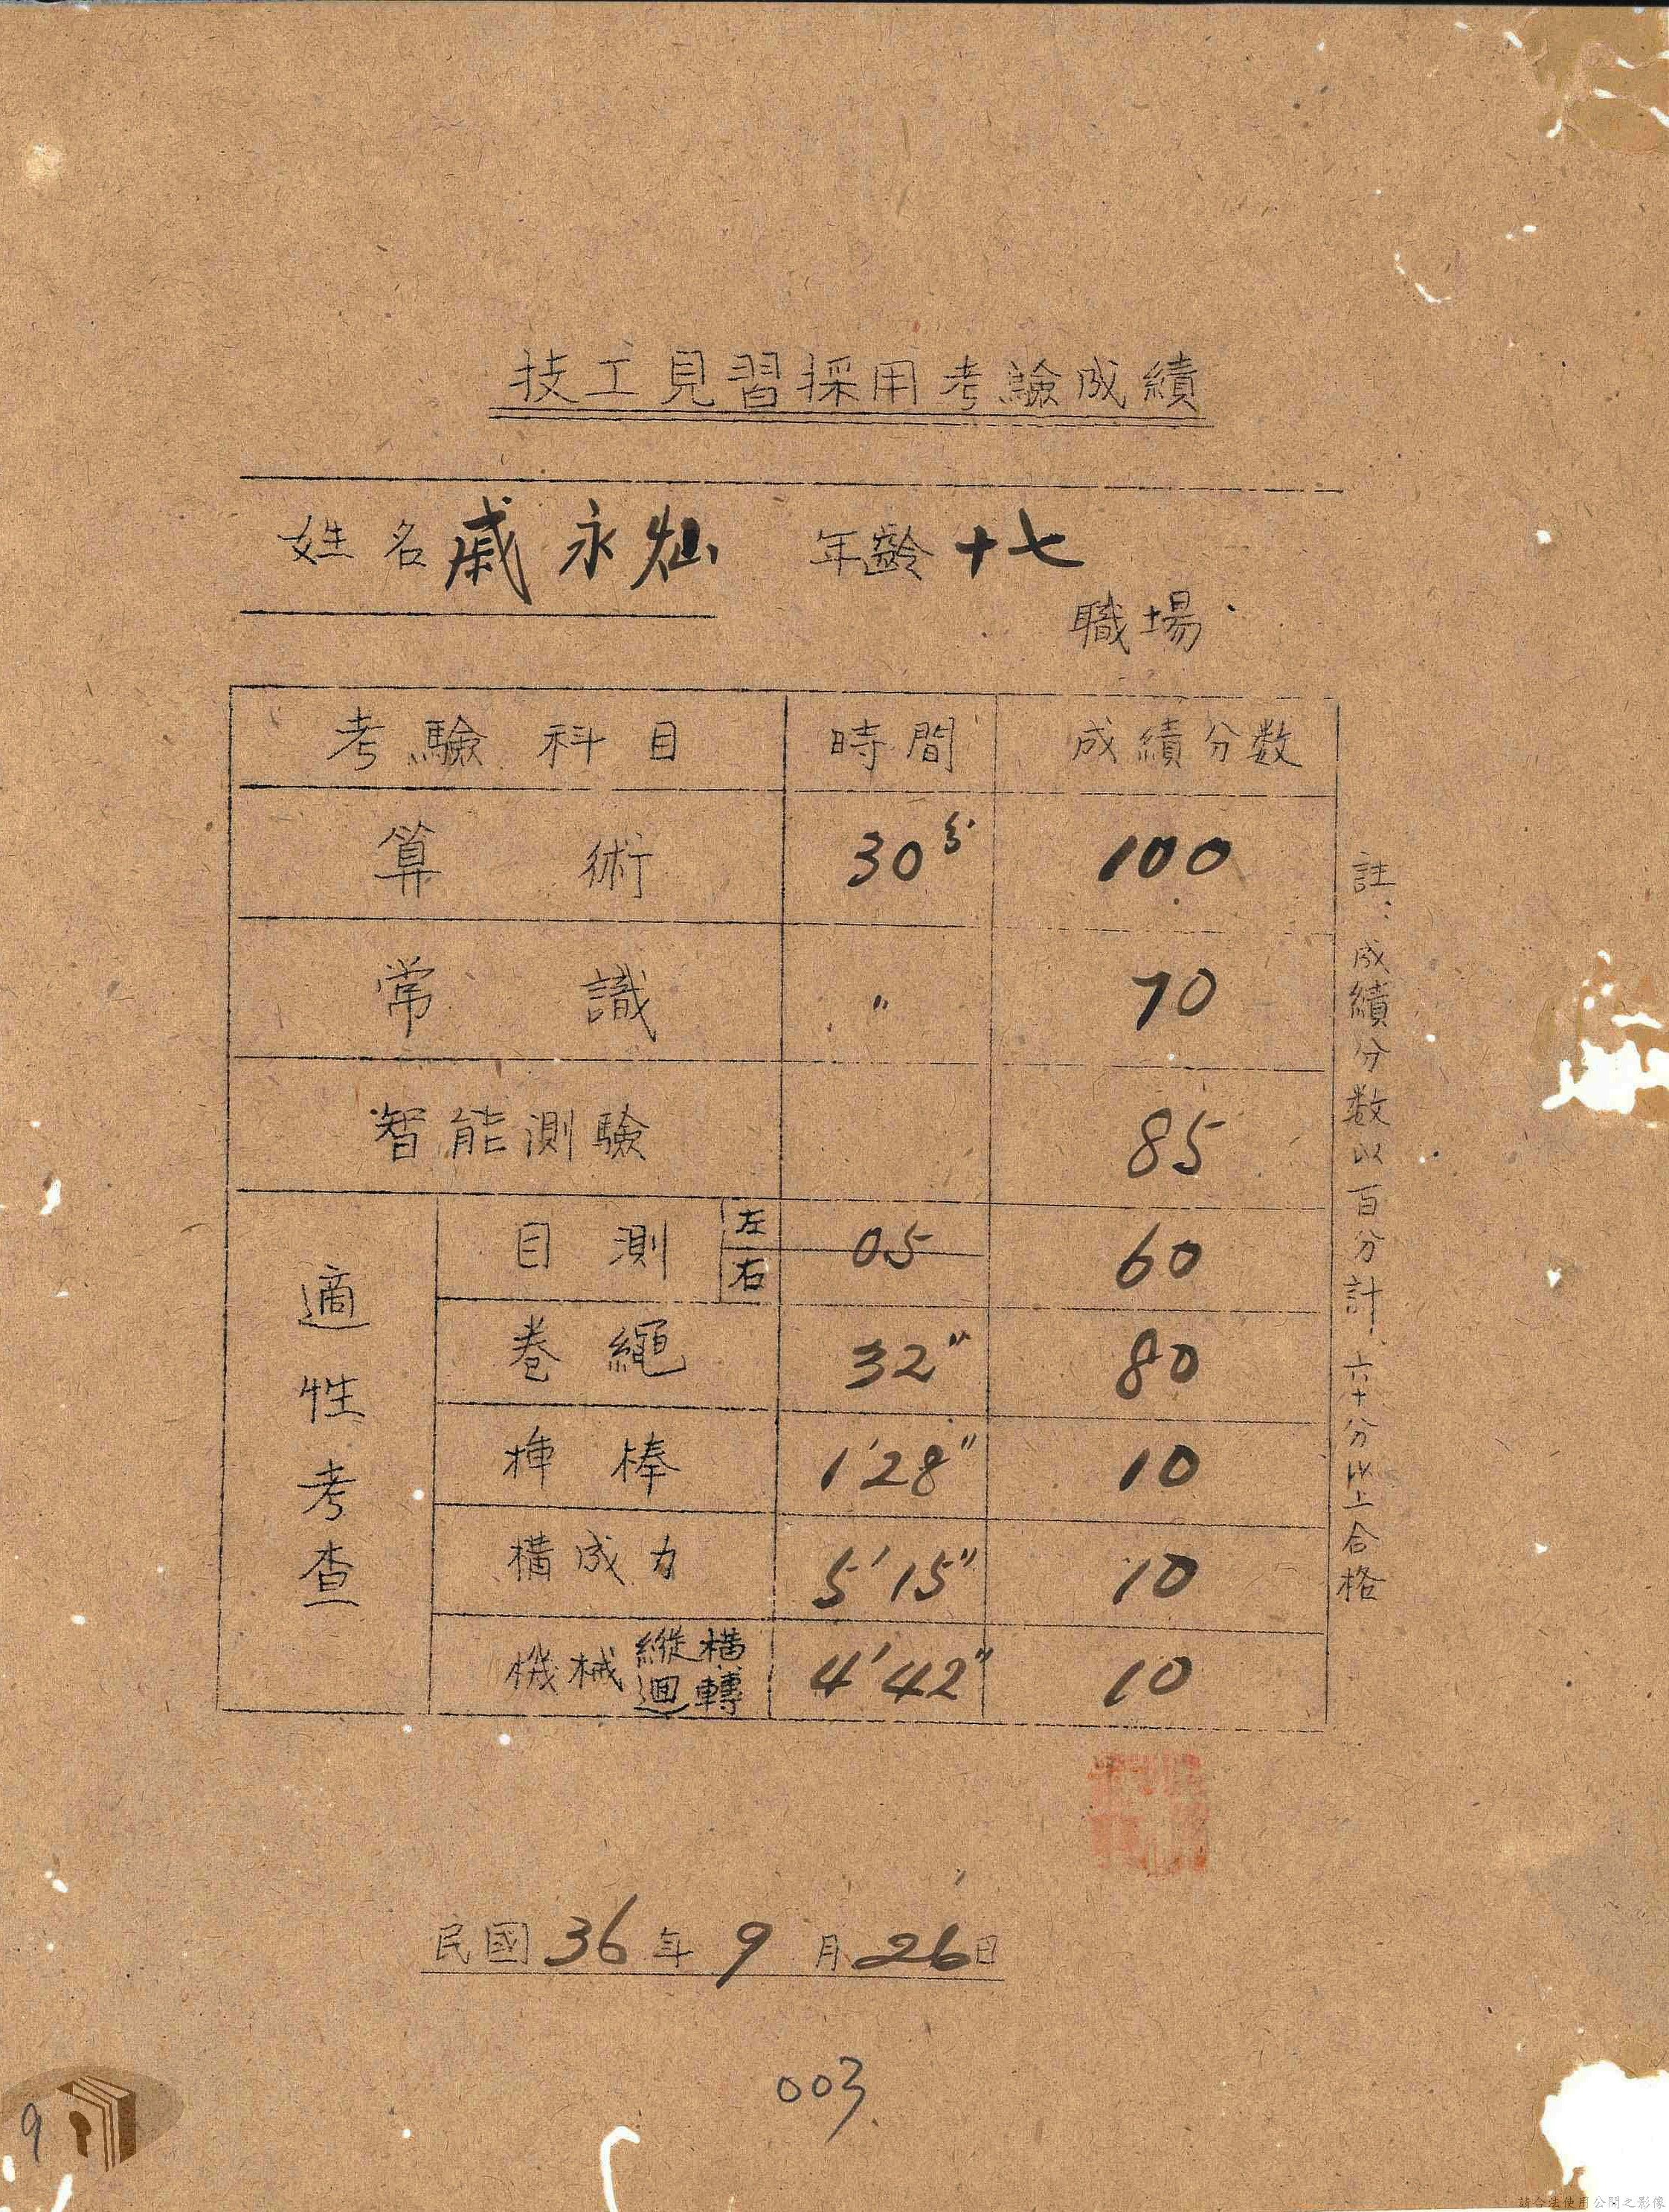 技工見習採用考驗成績
姓名 戚永灿 年齡 十七
職場
考驗科目 時間 成績分数
算術 30分 100
常識 〃 70
智能測驗 85
適性考查
目測 左 右 05 60
卷繩 32" 80
揷棒 1'28" 10
構成力 5'15" 10
機械 縱橫迴轉 4'42" 10
註：成績分数以百分計、六十分以上合格
民國36年9月26日
003
9
請合法使用公開之影像